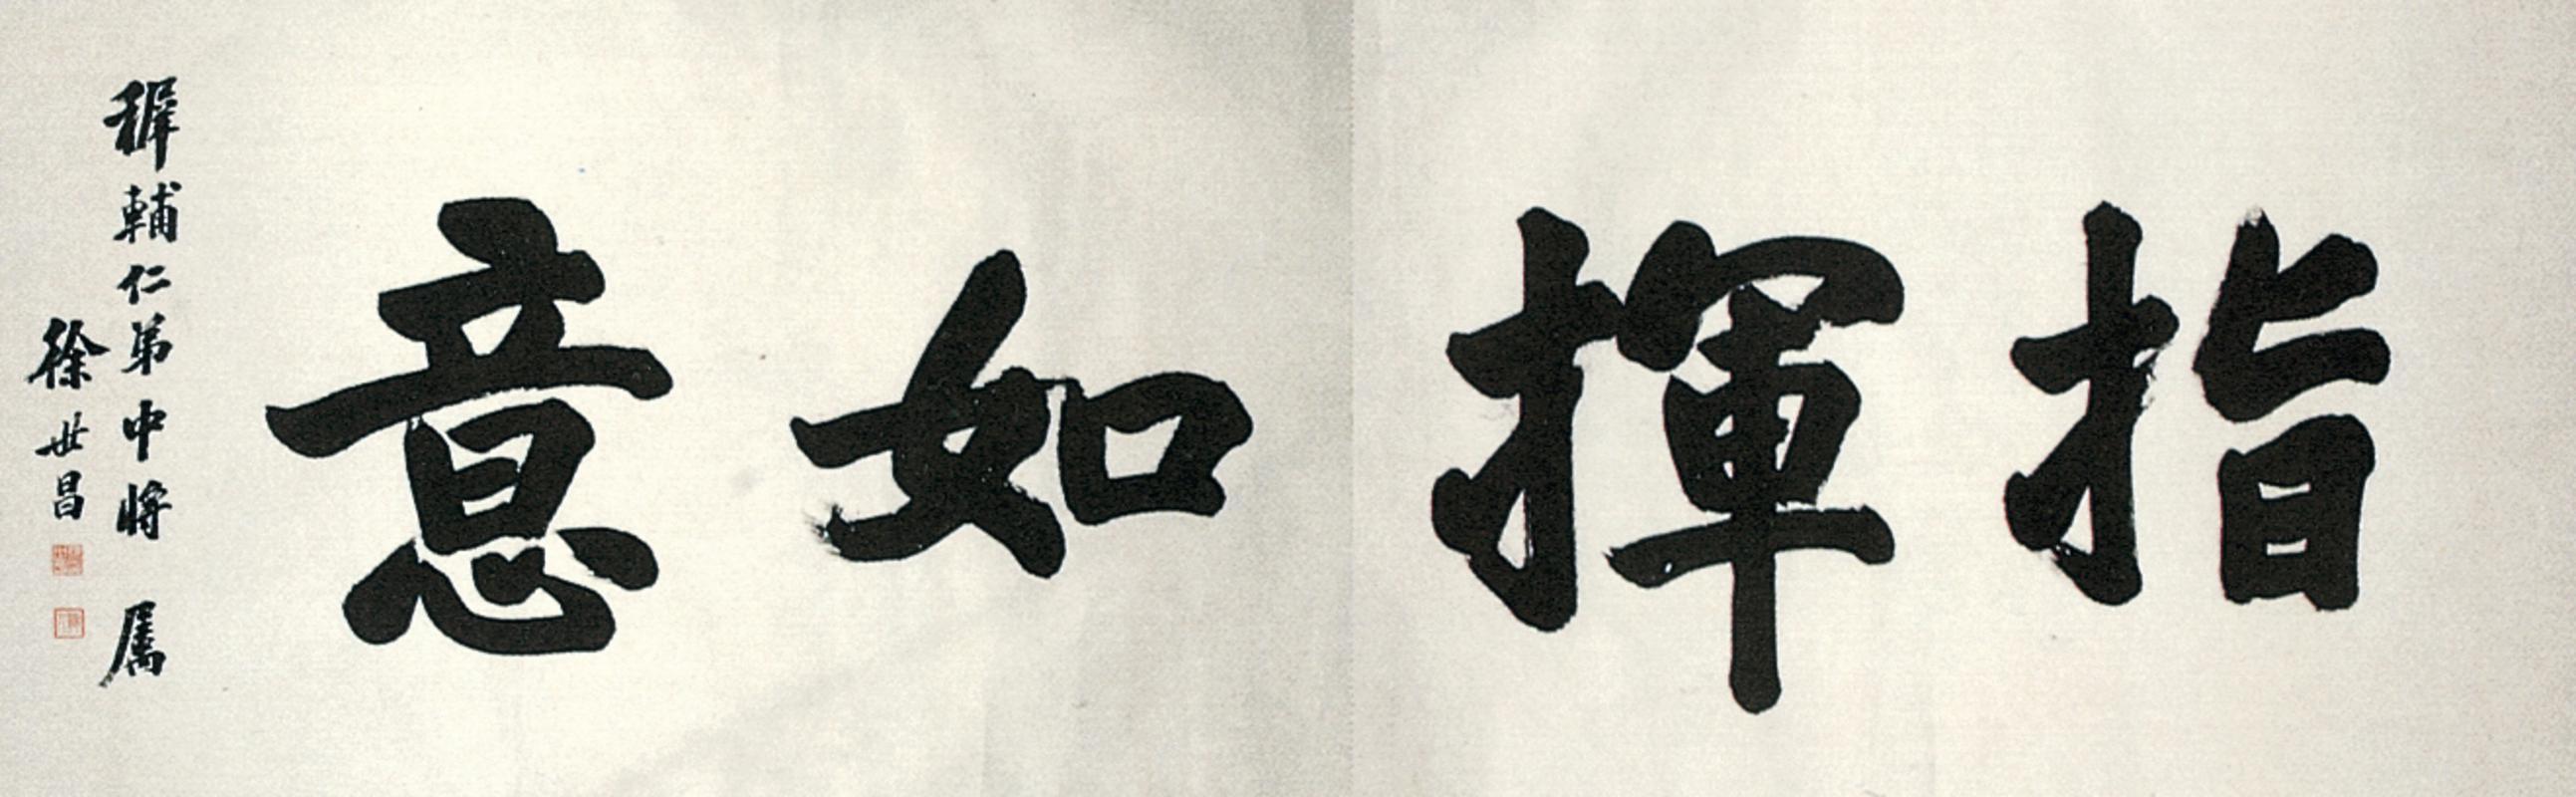 指揮如意
穉輔仁弟中將 属
徐世昌